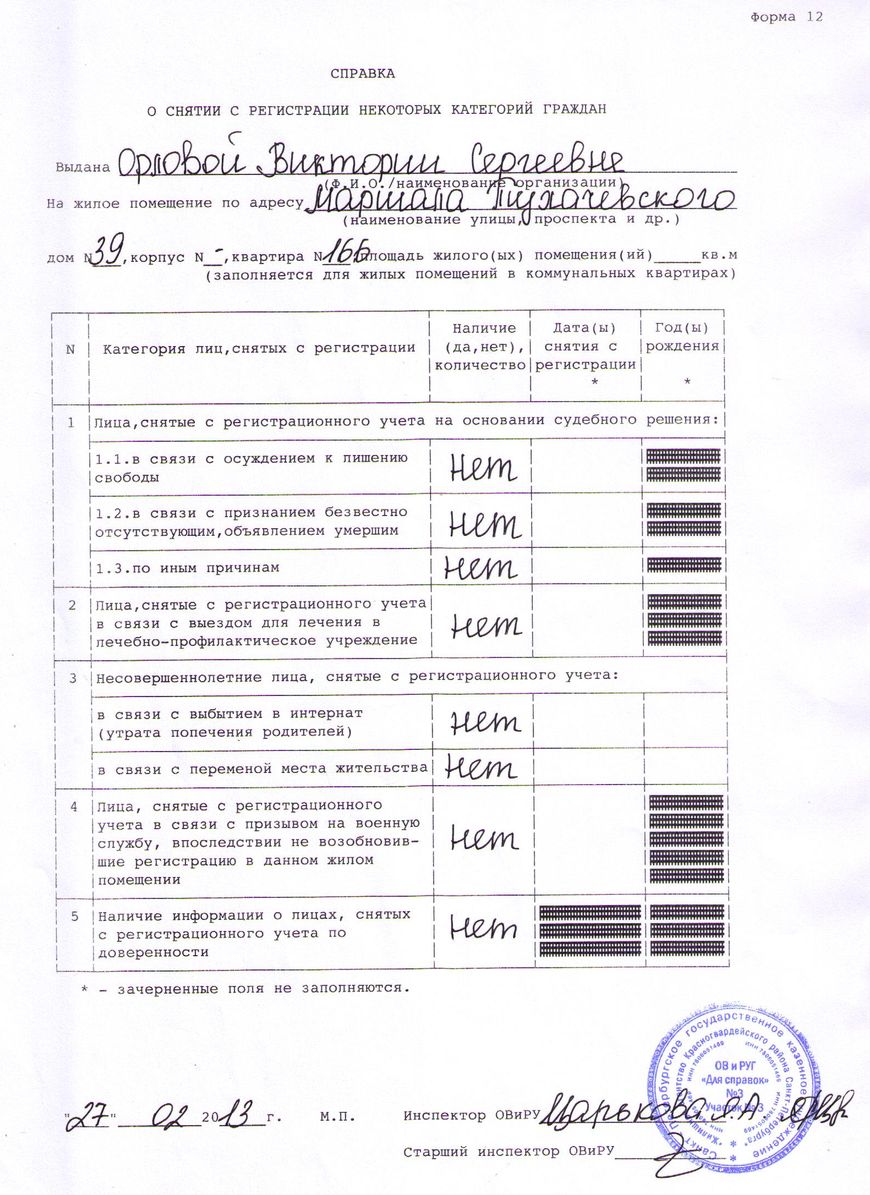 Форма 12
СПРАВКА
О СНЯТИИ С РЕГИСТРАЦИИ НЕКОТОРЫХ КАТЕГОРИЙ ГРАЖДАН
Выдана Орловой Виктории Сергеевне
(Ф.И.О./наименование организации)
На жилое помещение по адресу Маршала Тухачевского
(наименование улицы, проспекта и др.)
дом N 39, корпус N - , квартира N 166 площадь жилого(ых) помещения(ий)_____кв.м
(заполняется для жилых помещений в коммунальных квартирах)
N | Категория лиц,снятых с регистрации | Наличие (да,нет), количество | Дата(ы) снятия с регистрации * | Год(ы) рождения *
1 Лица,снятые с регистрационного учета на основании судебного решения:
1.1.в связи с осуждением к лишению
свободы нет
1.2.в связи с признанием безвестно
отсутствующим,объявлением умершим нет
1.3.по иным причинам нет
2 Лица,снятые с регистрационного учета
в связи с выездом для лечения в
лечебно-профилактическое учреждение нет
3 Несовершеннолетние лица, снятые с регистрационного учета:
в связи с выбытием в интернат
(утрата попечения родителей) нет
в связи с переменой места жительства нет
4 Лица, снятые с регистрационного
учета в связи с призывом на военную
службу, впоследствии не возобновив-
шие регистрацию в данном жилом
помещении нет
5 Наличие информации о лицах, снятых
с регистрационного учета по
доверенности нет
* - зачерненные поля не заполняются.
ОВ и РУГ
«Для справок»
№3
Участок №3
"27" 02 2013 г. М.П. Инспектор ОВиРУ Царькова Л.А.
Старший инспектор ОВиРУ